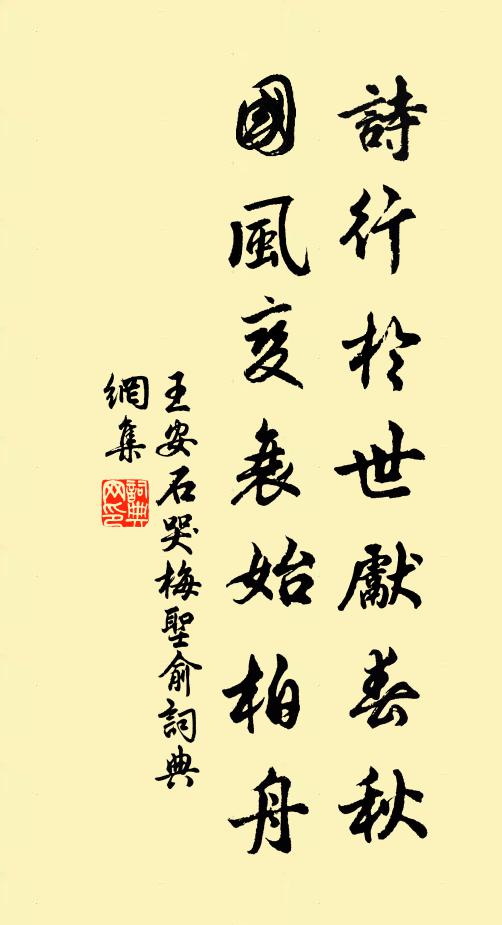 詩行於世獻春秋
國風変衰始柏舟
王安石哭梅聖俞詞典
網集
詞典
网印